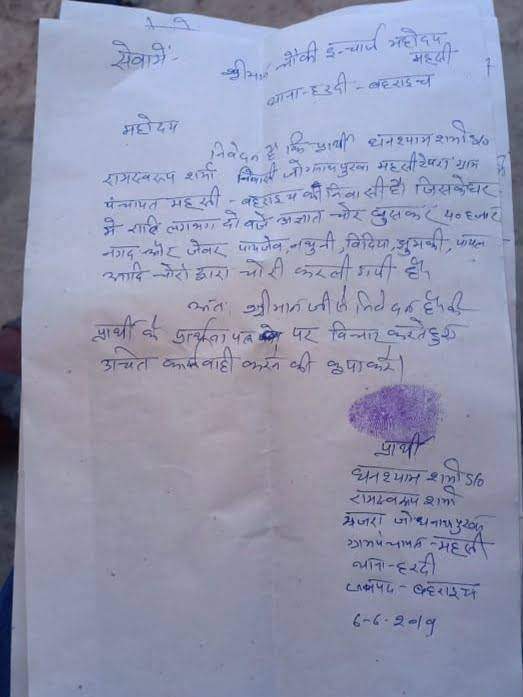 सेवामें-
श्रीमान चौकी इ-चार्ज महोदय
महसी
थाना-हरदी-बहराइच
महोदय
निवेदन है कि प्रार्थी घनश्याम शर्मा S/o
रामस्वरूप शर्मा निवासी जोधनाथपुरवा महसी ग्राम
पंचायत महसी - बहराइच का निवासी है। जिसके घर
मे रात्रि लगभग दो बजे अज्ञात चोर घुसकर ५० हजार
नगद और जेवर पायजेब, नथुनी, विदिया, झुमकी, पायल
आदि चोरो द्वारा चोरी करली गयी है।
अतः श्रीमान जी से निवेदन है की
प्रार्थी के प्रार्थना पत्र पर विचार करते हुए
उचित कार्यवाही करने की कृपा करें।
प्रार्थी
घनश्याम शर्मा S/o
रामस्वरूप शर्मा
मजरा जोधनाथपुरवा
ग्रामपंचायत-महसी
थाना-हरदी
जनपद-बहराइच
6-6-2019